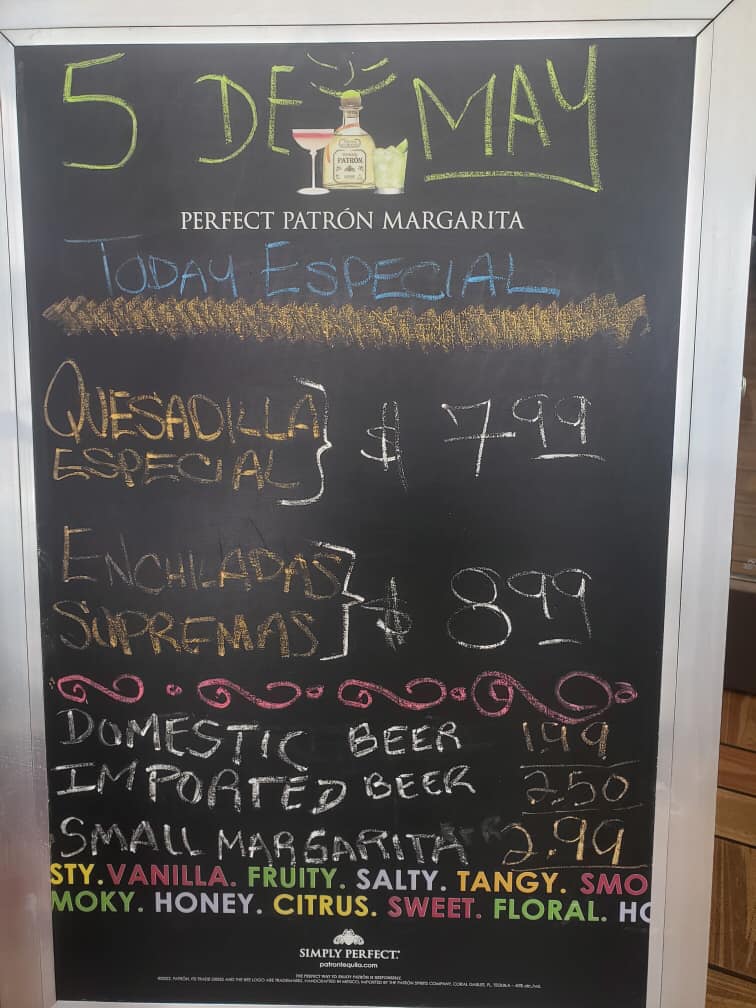 5 DE MAY
PATRÓN
PERFECT PATRÓN MARGARITA
TODAY ESPECIAL
QUESADILLA
ESPECIAL } $ 7.99
ENCHILADAS
SUPREMAS } $ 8.99
DOMESTIC BEER 1.99
IMPORTED BEER 2.50
SMALL MARGARITA 2.99
STY. VANILLA. FRUITY. SALTY. TANGY. SMO
MOKY. HONEY. CITRUS. SWEET. FLORAL. HO
SIMPLY PERFECT.
patrontequila.com
THE PERFECT WAY TO ENJOY PATRÓN IS RESPONSIBLY.